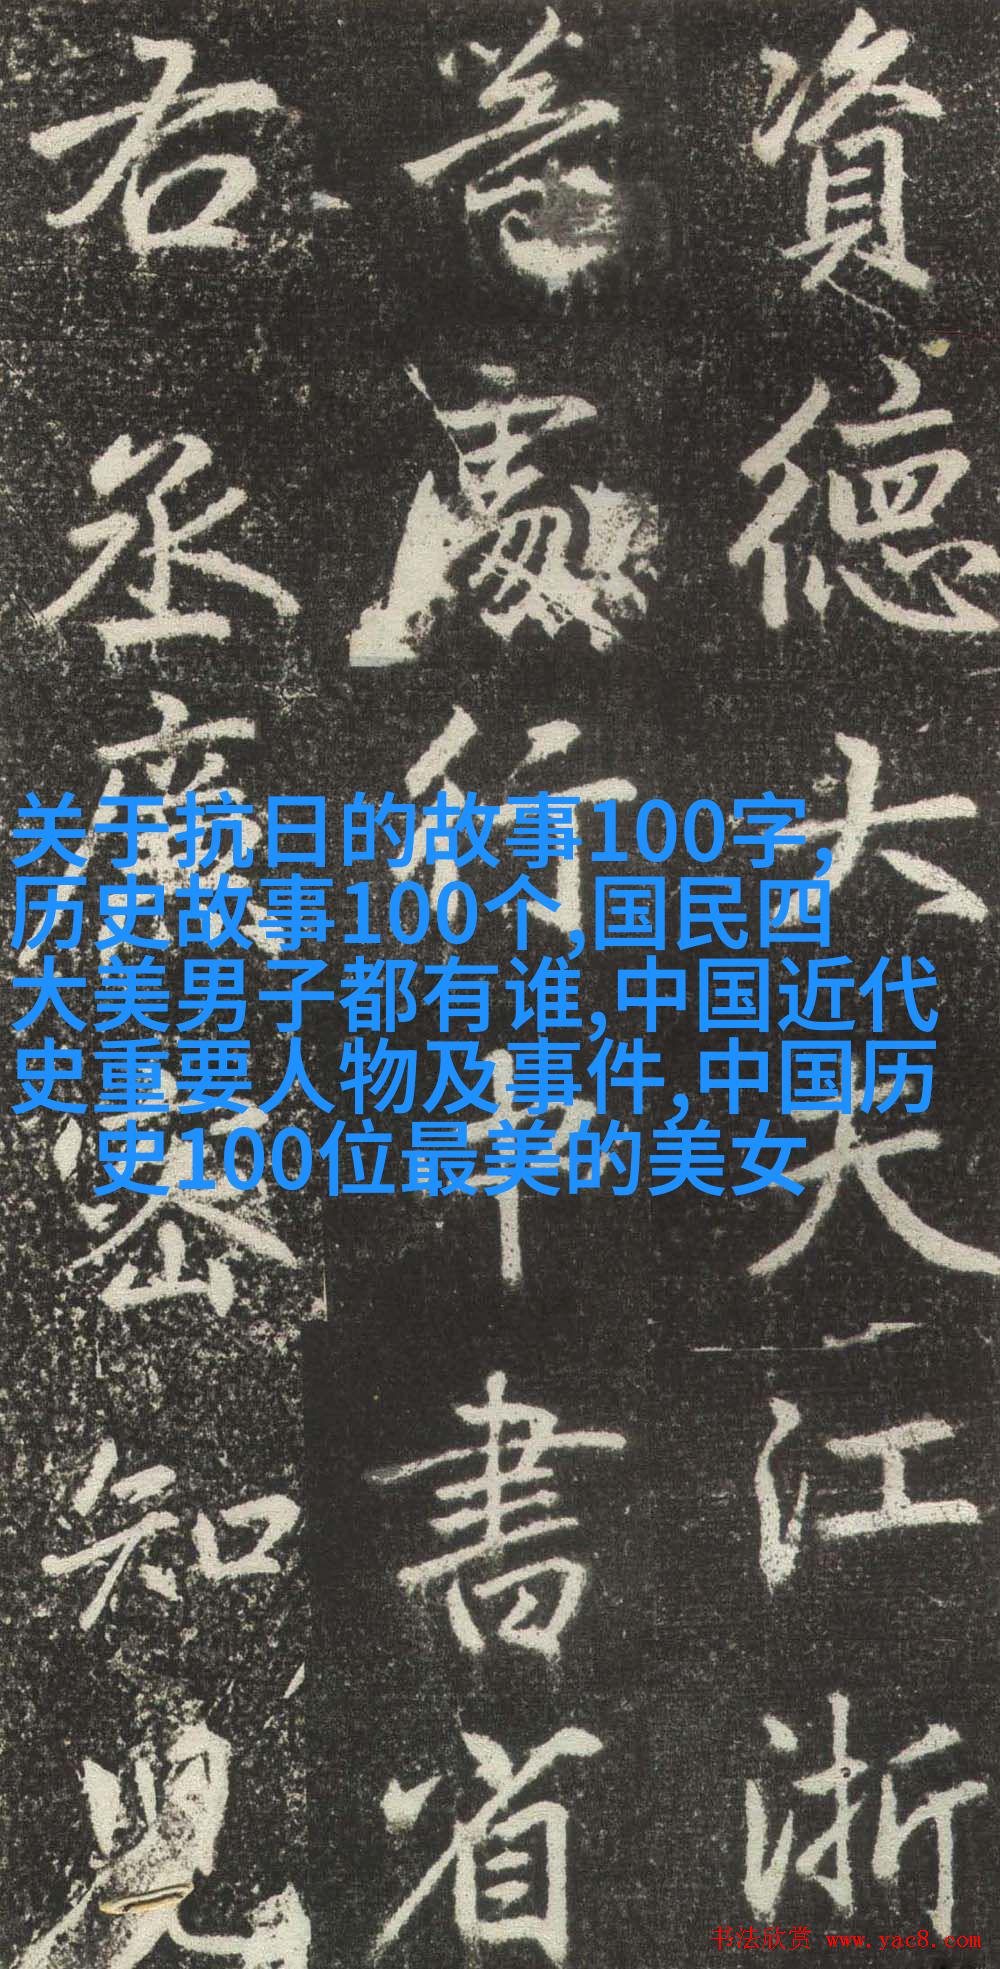 資德大夫江浙
等處行中書省
右丞廉密知兒
关于抗日的故事100字,
历史故事100个,国民四
大美男子都有谁,中国近代
史重要人物及事件,中国历
史100位最美的美女
书法欣赏 www.yac8.com